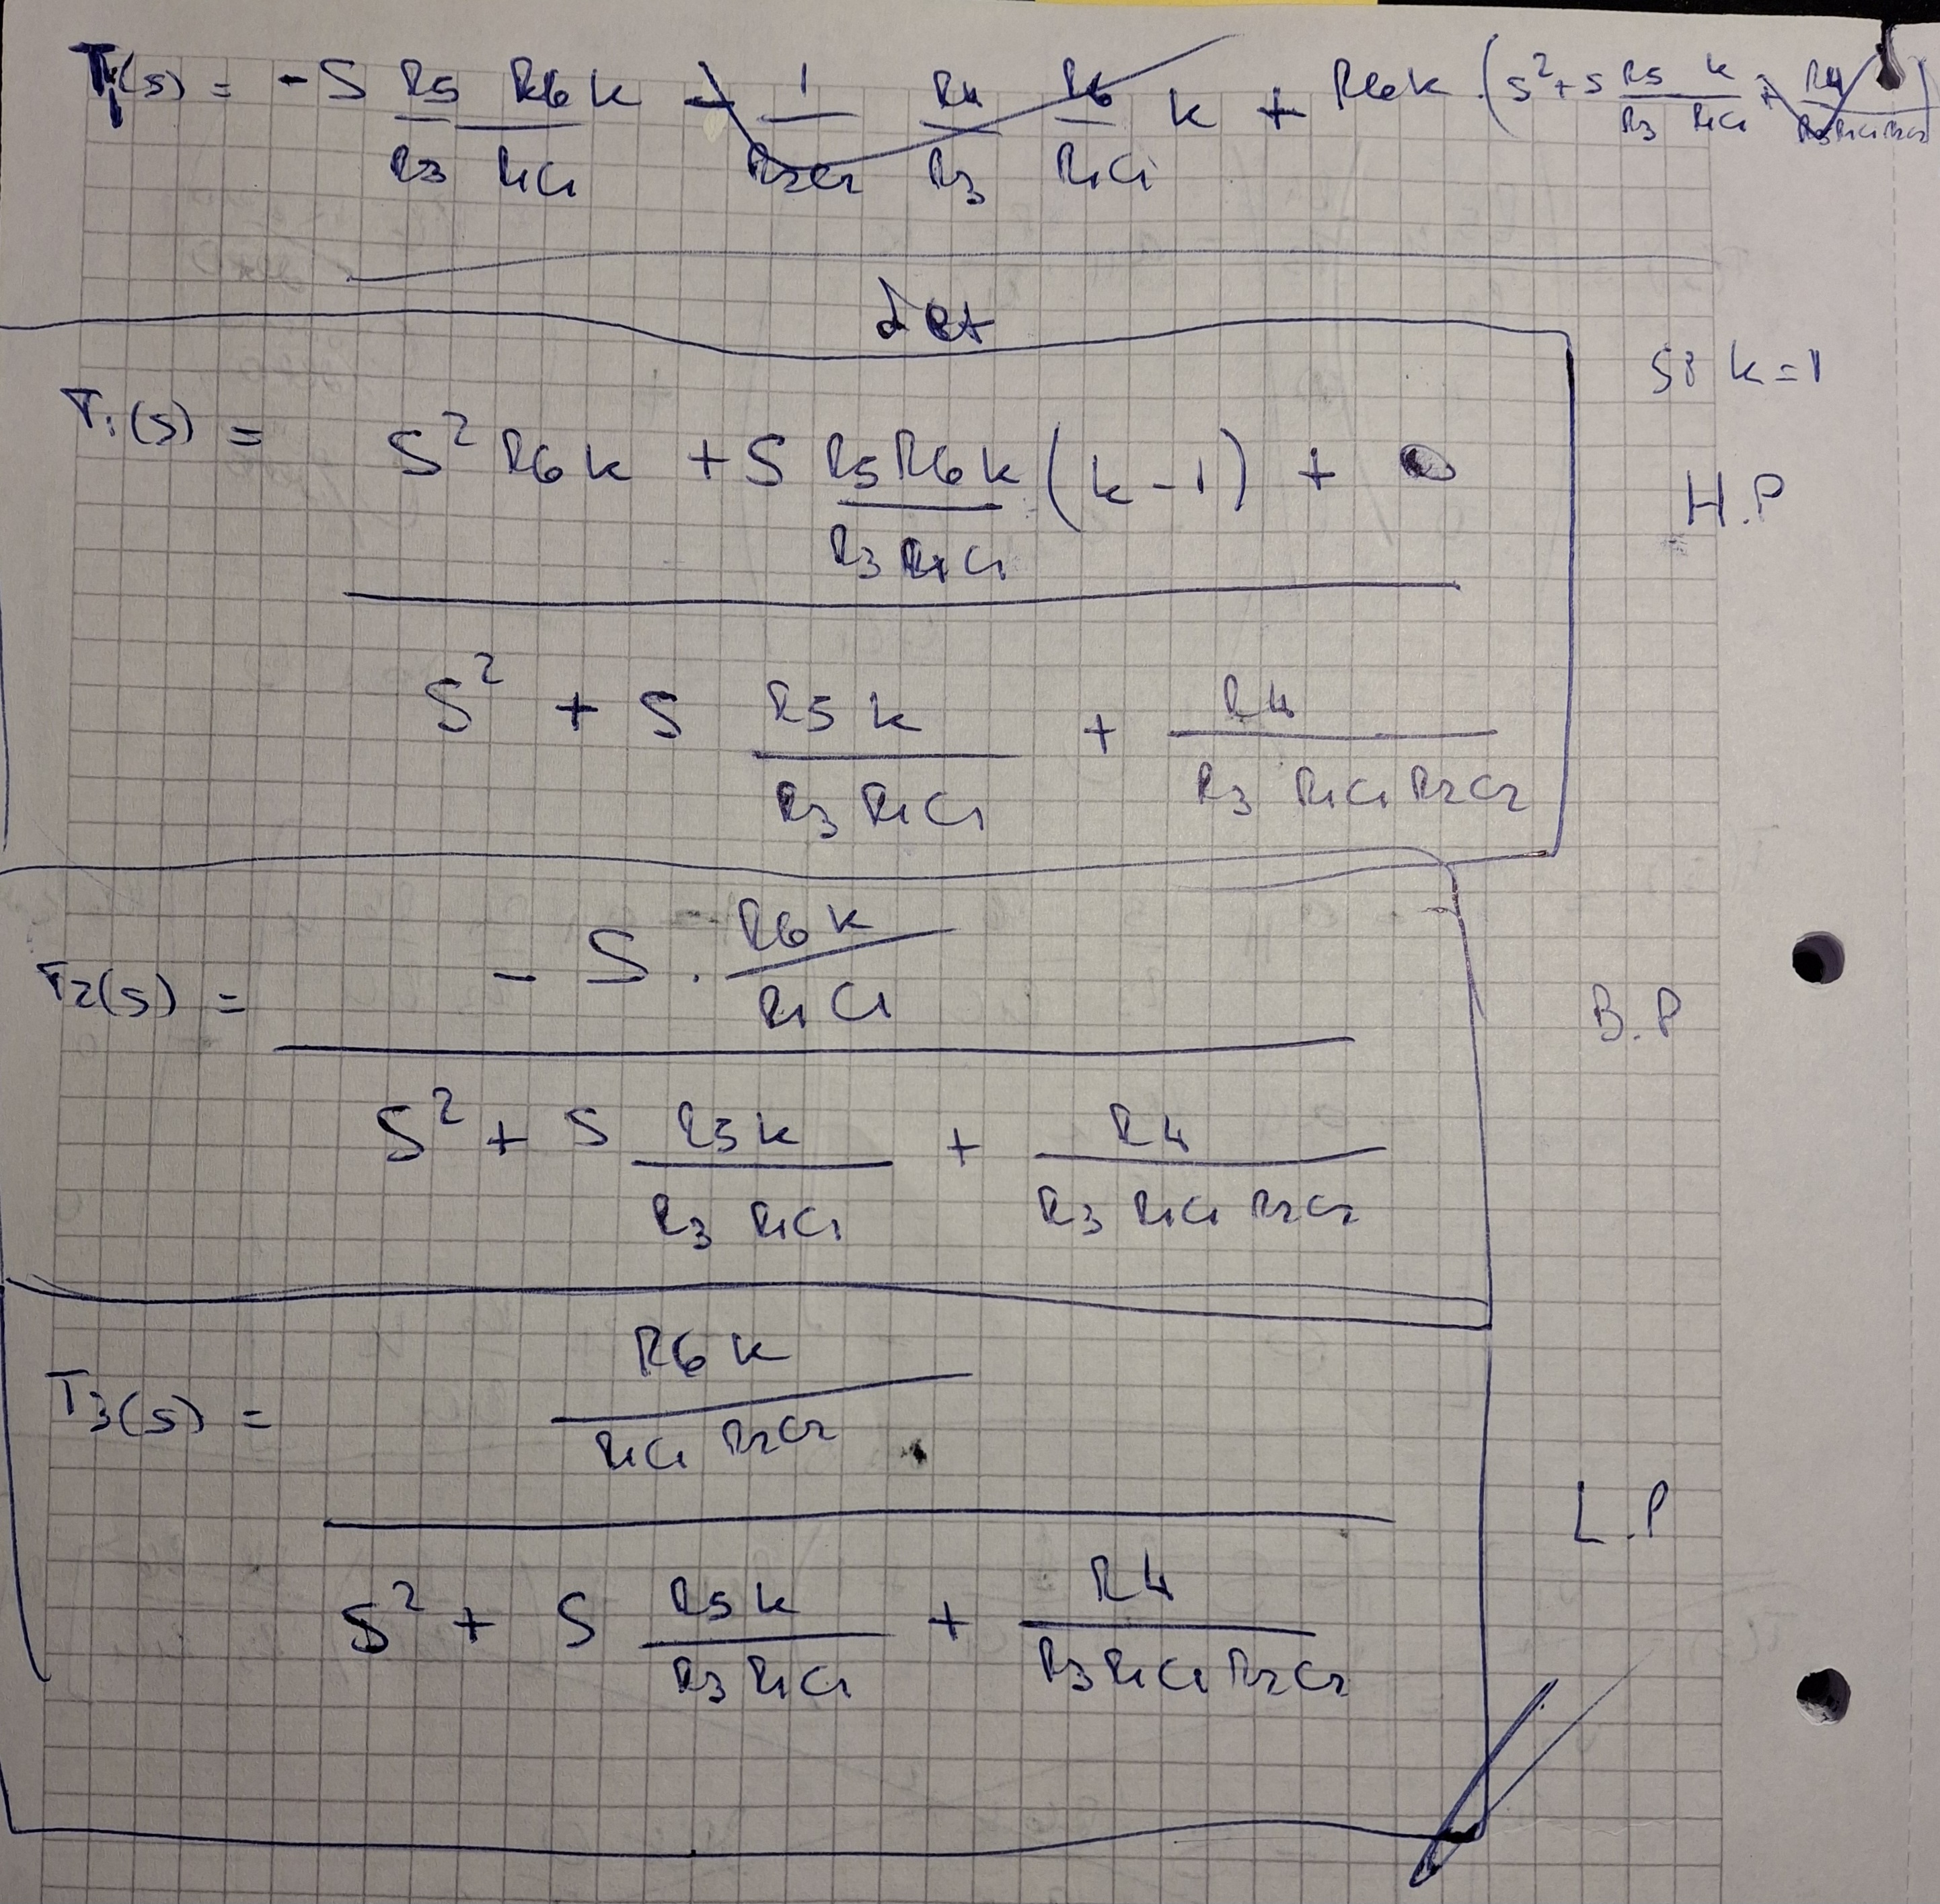 T1(s) = -S R5/R3 R6k/R1C1 - 1/R2C2 R4/R3 R6/R1C1 k + R6k · (S² + S R5/R3 k/R1C1 + R4/R3R1C1R2C2)
det
si k=1
T1(s) = S² R6k + S R5R6k/R3R1C1 (k-1) +
H.P
S² + S R5k/R3R1C1 + R4/R3R1C1R2C2
T2(s) = - S · R6k/R1C1
B.P
S² + S R5k/R3R1C1 + R4/R3R1C1R2C2
T3(s) = R6k/R1C1R2C2
L.P
S² + S R5k/R3R1C1 + R4/R3R1C1R2C2